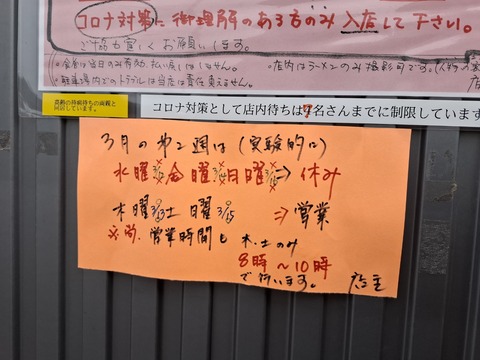 コロナ対策に御理解のある方のみ入店して下さい。
ご協力宜しくお願いします。
・食券は当日のみ有効 払い戻しはしません。
・店内はラーメンのみ撮影可です。
・駐車場内でのトラブルは当店は責任負えません。
高齢の持病持ちの両親と
同居しています。
コロナ対策として店内待ちは7名さんまでに制限しています
3月の第2週は(実験的に)
水曜 金曜 日曜 ⇒ 休み
木曜 土曜 ⇒ 営業
※尚、営業時間も 木・土のみ
8時〜10時
で行います。 店主